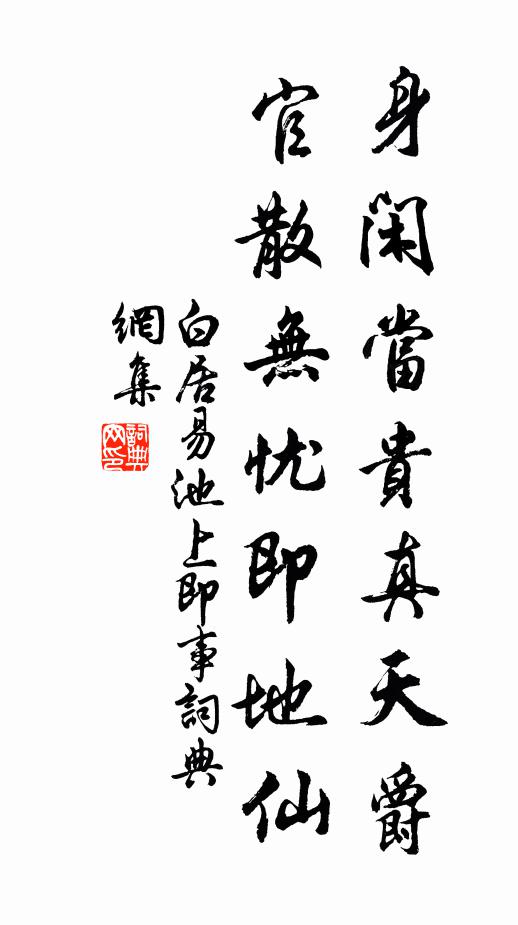 身閑當貴真天爵
官散無忧即地仙
白居易池上即事詞典
網集
詞典網印